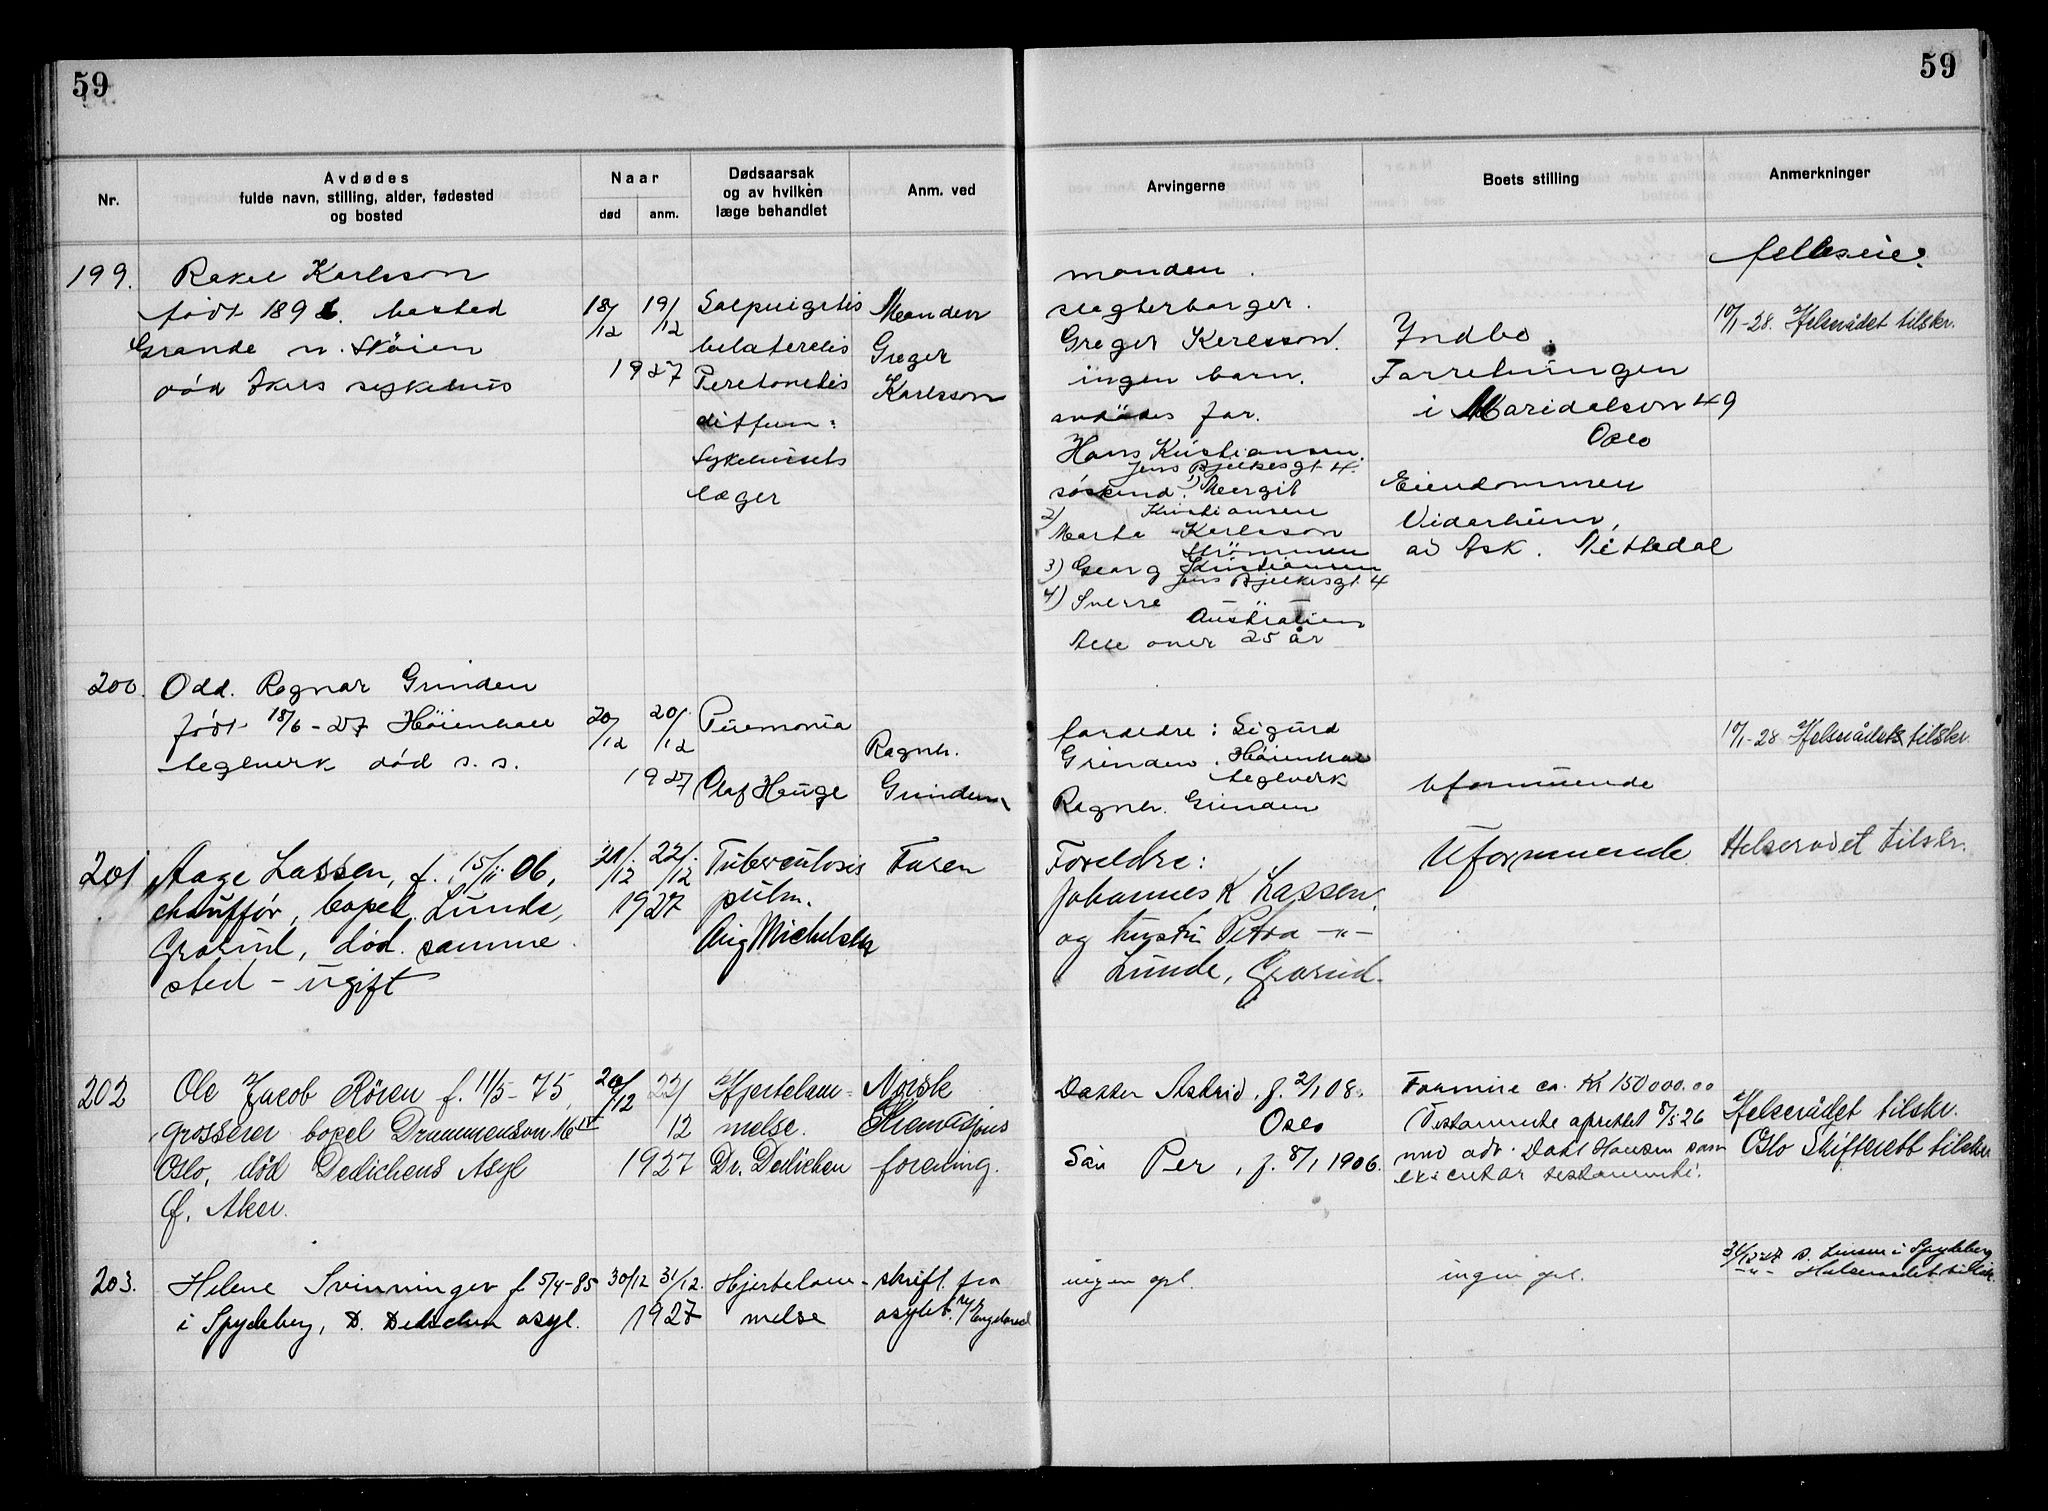 59
59
Nr.
Avdødes
fulde navn, stilling, alder, fødested
og bosted
Naar
død
anm.
Dødsaarsak
og av hvilken
læge behandlet
Anm. ved
Arvingerne
Boets stilling
Anmerkninger
199.
Rakel Karlsson
født 1896. bosted
Grande n. Skøien
død Akers sykehus
18/12
19/12
1927
Salpingitis
belaterelis
Peretonitis
diffum:
Sykehusets
læger
Manden
Greger
Karlsson
manden.
slagterborger.
Greger Karlsson.
ingen barn.
avdødes far.
Hans Kristiansen
Jens Bjelkesgt. 4.
søskend: 1) Margit
Kristiansen
2) Marta Karlsson
Strømmen
3) Georg Kristiansen
Jens Bjelkesgt 4
4) Sverre
Australien
Alle over 25 år
Indbo.
Forretningen
i Maridalsvn 49
Oslo
Eiendommen
Viderheim,
av Ask. Nittedal
felleseie.
10/1-28. Helserådet tilskr.
200.
Odd. Ragnar Grinden
født 18/6-27 Høienhall
teglverk død s. s.
20/12
20/12
1927
Pnemonia
Olaf Hauge
Ragnh.
Grinden
foreldre: Sigurd
Grinden. Høienhal
teglverk
Ragnh. Grinden
uformuende
10/1-28 Helserådets tilskr.
201
Aage Lassen, f. 15/11 06,
chauffør, bopel. Lunde,
Grorud, død. samme
sted - ugift
21/12
22/12
1927
Tuberculosis
pulm.
Aug Michelsen
Faren
Foreldre:
Johannes K Lassen.
og hustru Petra -"-
Lunde, Grorud.
Uformuende
Helserådet tilskr.
202
Ole Jacob Röien f. 11/5-75,
Grosserer bopel Drammensvn 16 IV
Oslo, død Dedichens Asyl
Ø. Aker.
20/12
22/12
1927
Hjertelam-
melse.
Dr. Dedichen
Norsk
Kremasjons
forening.
Datter Astrid, f. 2/1 08.
Oslo
Sön Per, f. 8/1 1906.
Formue ca. Kr 150000.00
(Testamente oprettet 8/5 26
med adv. Dahl Hansen som
executor testamenti.
Helserådet tilskr.
Oslo Skifterett tilskr
203.
Helene Svinninger f. 5/4-85
i Spydeberg, D. Dedichen asyl.
30/12
31/12.
1927
Hjertelam-
melse
skrift. fra
asylet
ingen opl.
ingen opl.
31/12 27 S. Linsm i Spydeberg
-"- Helseraadet tilskr.